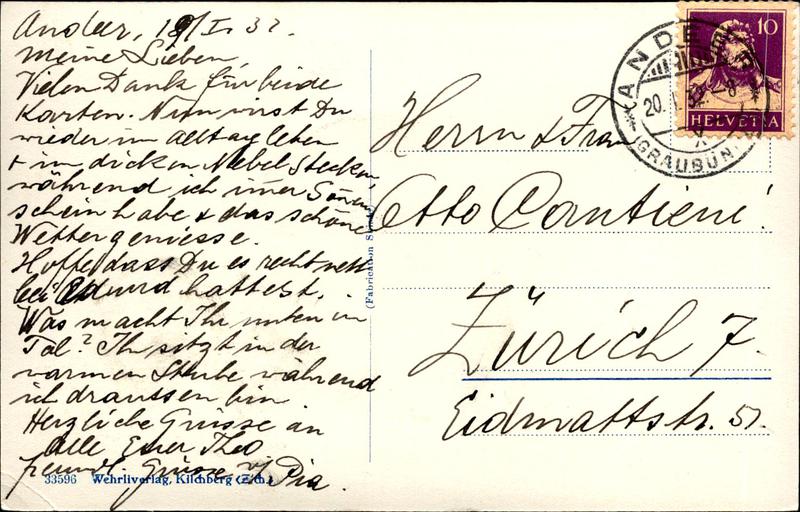 Andeer, 19/I. 32.
Meine Lieben,
Vielen Dank für beide
Karten. Nun wirst Du
wieder im Alltag leben
+ im dicken Nebel stecken,
während ich imer Sonnen
schein habe & das schöne
Wetter geniesse.
Hoffe, dass Du es recht nett
bei Eduard hattest.
Was macht Ihr unten im
Tal? Ihr sitzt in der
warmen Stube während
ich draussen bin
Herzliche Grüsse an
alle Euer Theo
freundl. Grüsse v/ Pia.
33596 Wehrliverlag, Kilchberg (Zch.)
(Fabrication Suisse)
10
HELVETIA
ANDEER
20. I. 32. - 8
(GRAUBÜN.)
Herrn & Frau
Otto Cantieni!
Zürich 7.
Eidmattstr. 51.